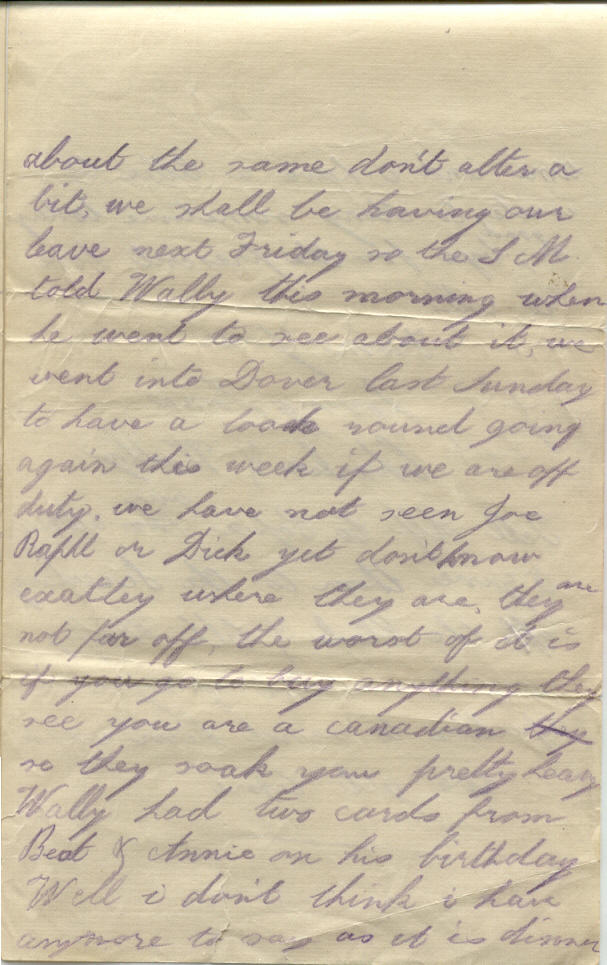 about the same don't alter a
bit, we shall be having our
leave next Friday so the S M.
told Wally this morning when
he went to see about it, we
went into Dover last Sunday
to have a look round going
again this week if we are off
duty. we have not seen Joe
or Dick yet don't know
exatley where they are, they are
not far off, the worst of it is
if you go to buy anything they
see you are a canadian they
so they soak you pretty heavy
Wally had two cards from
Beat & Annie on his birthday
Well i don't think i have
anymore to say as it is dinner